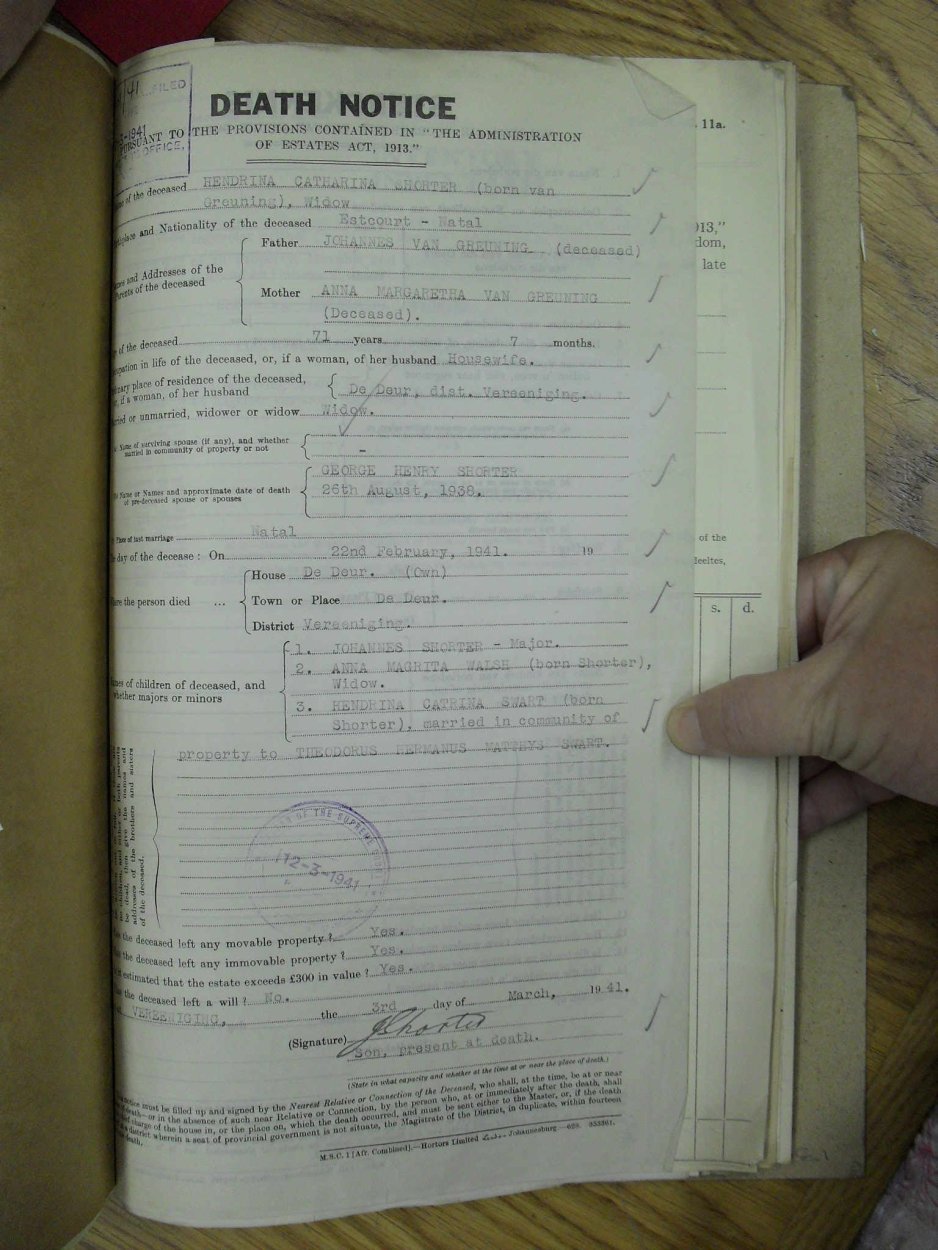 /41 FILED
-3-1941
OFFICE.
DEATH NOTICE
PURSUANT TO THE PROVISIONS CONTAINED IN "THE ADMINISTRATION
OF ESTATES ACT, 1913."
of the deceased HENDRINA CATHARINA SHORTER (born van
Greuning), Widow
place and Nationality of the deceased Estcourt - Natal
Names and Addresses of the
Parents of the deceased
Father JOHANNES VAN GREUNING (deceased)
Mother ANNA MARGARETHA VAN GREUNING
(Deceased).
of the deceased 71 years 7 months.
Occupation in life of the deceased, or, if a woman, of her husband Housewife.
Ordinary place of residence of the deceased,
or, if a woman, of her husband De Deur, dist. Vereeniging.
Married or unmarried, widower or widow Widow.
Name of surviving spouse (if any), and whether
married in community of property or not -
Name or Names and approximate date of death
of pre-deceased spouse or spouses
GEORGE HENRY SHORTER
26th August, 1938.
Place of last marriage Natal
The day of the decease : On 22nd February, 1941. 19
Where the person died ...
House De Deur. (Own)
Town or Place De Deur.
District Vereeniging.
Names of children of deceased, and
whether majors or minors
1. JOHANNES SHORTER - Major.
2. ANNA MAGRITA WALSH (born Shorter),
Widow.
3. HENDRINA CATRINA SWART (born
Shorter), married in community of
property to THEODORUS HERMANUS MATTHYS SWART.
be dead, then give the names and
addresses of the brothers and sisters
of the deceased.
OF THE SUPREME
12-3-1941
the deceased left any movable property ? Yes.
the deceased left any immovable property ? Yes.
estimated that the estate exceeds £300 in value ? Yes.
the deceased left a will ? No.
VEREENIGING, the 3rd day of March, 1941.
(Signature) JShorter
Son, present at death.
(State in what capacity and whether at the time at or near the place of death.)
notice must be filled up and signed by the Nearest Relative or Connection of the Deceased, who shall, at the time, be at or near
death—or in the absence of such near Relative or Connection, by the person who, at or immediately after the death, shall
charge of the house in, or the place on, which the death occurred, and must be sent either to the Master, or, if the death
district wherein a seat of provincial government is not situate, the Magistrate of the District, in duplicate, within fourteen
death.
M.S.C. 1 [Afr. Combined].—Hortors Limited Johannesburg
11a.
13,"
dom,
late
of the
s. d.